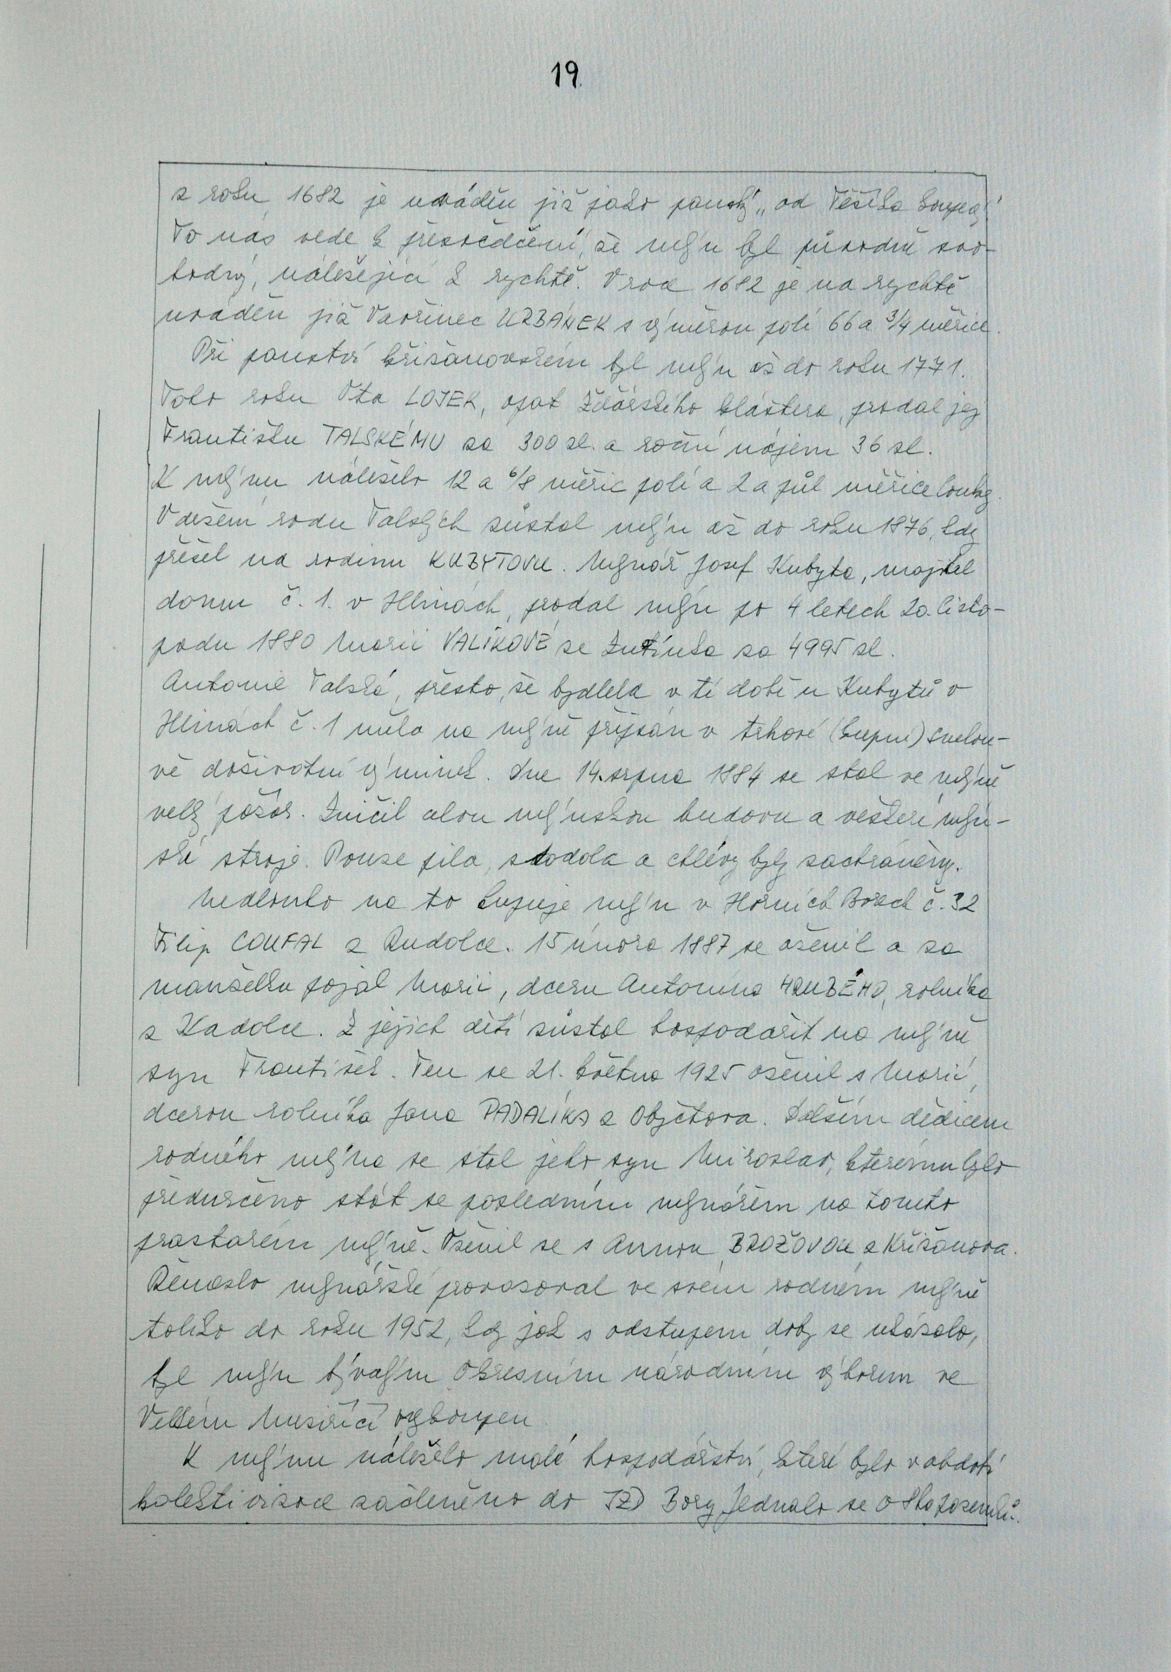 19
z roku 1682 je uváděn již jako panský „od Těšíka koupený"
To nás vede k přesvědčení, že mlýn byl původně svo-
bodný, náležející k rychtě. V roce 1682 je na rychtě
uváděn již Vavřinec URBÁNEK s výměrou polí 66 a 3/4 měřice.
Při panství křižanovském byl mlýn až do roku 1771.
Toho roku Ota LOJEK, opat žďárského kláštera, prodal jej
Františku TALSKÉMU za 300 zl. a roční nájem 36 zl.
K mlýnu náleželo 12 a 6/8 měřic polí a 2 a půl měřice louky.
V držení rodu Talských zůstal mlýn až do roku 1876, kdy
přešel na rodinu KUBYTOVU. Mlynář Josef Kubyta, majitel
domu č. 1. v Hlinách, prodal mlýn po 4 letech 20. listo-
padu 1880 Marii VALÍKOVÉ ze za 4995 zl.
Antonie Talská, přesto, že bydlela v té době u Kubytů v
Hlinách č. 1 měla na mlýně připsán v trhové (kupní) smlou-
vě doživotní výminek. Dne 14. srpna 1884 se stal ve mlýně
velký požár. Zničil celou mlýnskou budovu a veškeré mlýn-
ské stroje. Pouze pila, stodola a chlévy byly zachráněny.
Nedlouho na to kupuje mlýn v Horních Borech č. 32
Filip COUFAL z Rudolce. 15 února 1887 se oženil a za
manželku pojal Marii, dceru Antonína HRUBÉHO, rolníka
z Kadolce. Z jejich dětí zůstal hospodařit na mlýně
syn František. Ten se 21. května 1925 oženil s Marií,
dcerou rolníka Jana PADALÍKA z Obyčtova. Dalším dědicem
rodného mlýna se stal jeho syn Miroslav, kterému bylo
předurčeno stát se posledním mlynářem na tomto
prastarém mlýně. Oženil se s Annou BROŽOVOU z Křižanova.
Řemeslo mlynářské provozoval ve svém rodném mlýně
toliko do roku 1952, kdy jak s odstupem doby se ukázalo,
byl mlýn bývalým Okresním národním výborem ve
Velkém Meziříčí vykoupen
K mlýnu náleželo malé hospodářství, které bylo v období
kolektivizace začleněno do JZD Bory Jednalo se o 8 ha pozemků.